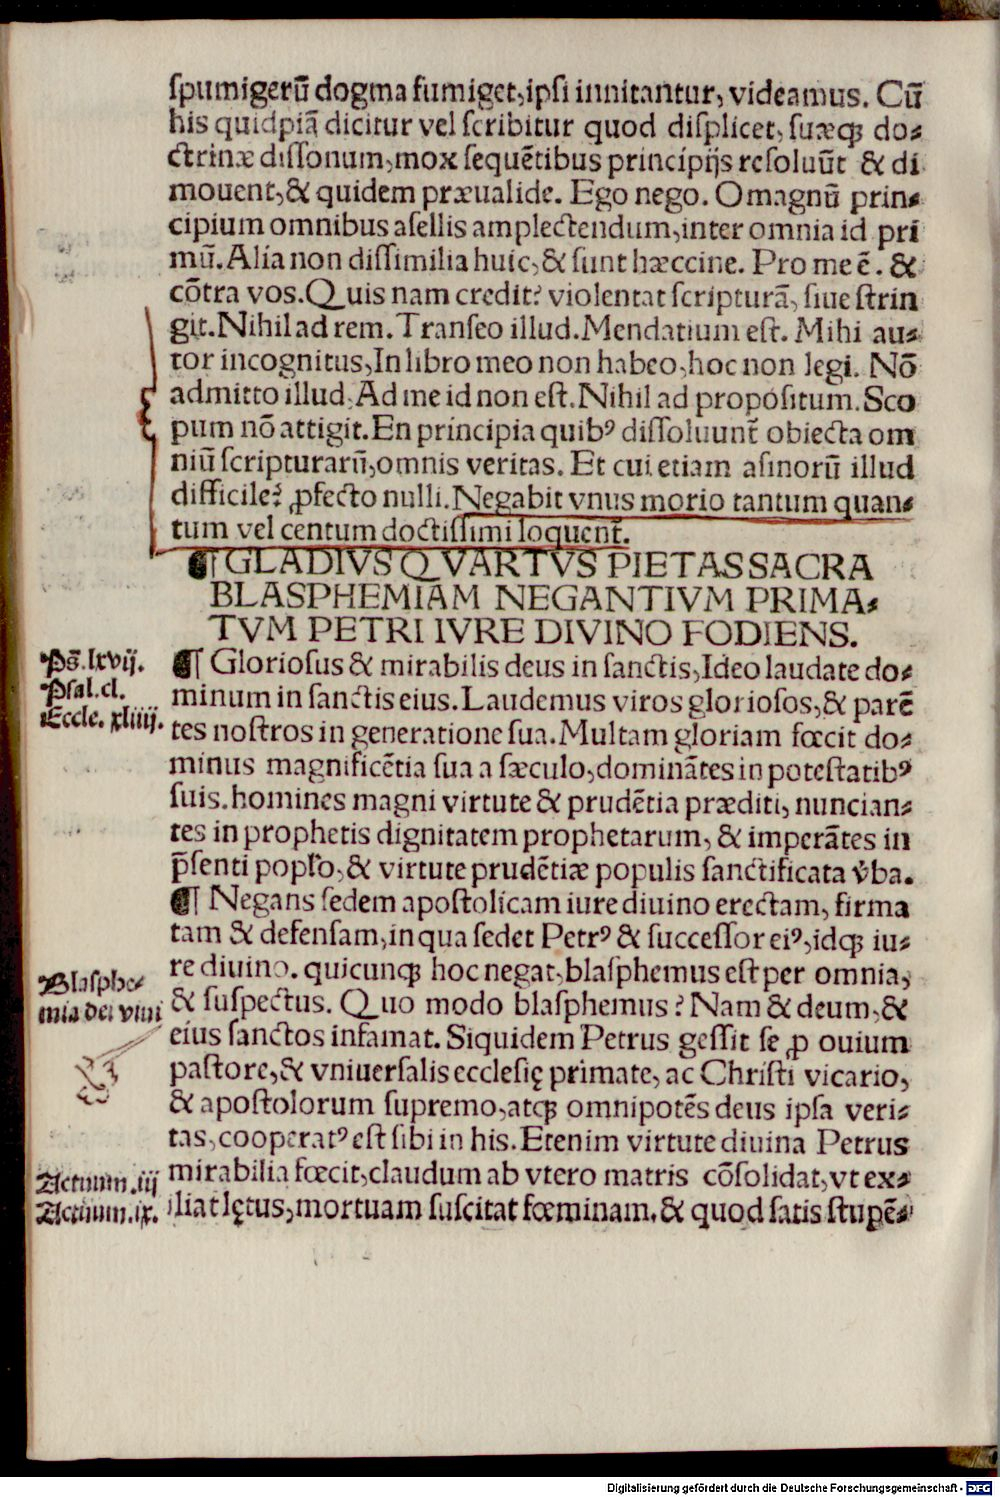 spumigerū dogma fumiget, ipsi innitantur, videamus. Cū
his quidpiā dicitur vel scribitur quod displicet, suæq; do⸗
ctrinæ dissonum, mox sequētibus principijs resoluūt & di
mouent, & quidem præualide. Ego nego. O magnū prin⸗
cipium omnibus asellis amplectendum, inter omnia id pri
mū. Alia non dissimilia huic, & sunt hæccine. Pro me ē. &
cōtra vos. Quis nam credit? violentat scripturā, siue strin
git. Nihil ad rem. Transeo illud. Mendatium est. Mihi au⸗
tor incognitus, In libro meo non habeo, hoc non legi. Nō
admitto illud, Ad me id non est. Nihil ad propositum. Sco
pum nō attigit. En principia quibꝰ dissoluunt̄ obiecta om
niū scripturarū, omnis veritas. Et cui etiam asinorū illud
difficile? ꝓfecto nulli. Negabit vnus morio tantum quan⸗
tum vel centum doctissimi loquent̄.
¶ GLADIVS QVARTVS PIETAS SACRA
BLASPHEMIAM NEGANTIVM PRIMA⸗
TVM PETRI IVRE DIVINO FODIENS.
Ps̄. lxvij.
Psal. cl.
Eccle. xliiij.
¶ Gloriosus & mirabilis deus in sanctis, Ideo laudate do⸗
minum in sanctis eius. Laudemus viros gloriosos, & parē
tes nostros in generatione sua. Multam gloriam fœcit do⸗
minus magnificētia sua a sæculo, dominātes in potestatibꝰ
suis. homines magni virtute & prudētia præditi, nuncian⸗
tes in prophetis dignitatem prophetarum, & imperātes in
p̄senti poplo, & virtute prudētiæ populis sanctificata v̄ba.
¶ Negans sedem apostolicam iure diuino erectam, firma
tam & defensam, in qua sedet Petrꝰ & successor eiꝰ, idq; iu⸗
re diuino. quicunq; hoc negat, blasphemus est per omnia,
& suspectus. Quo modo blasphemus? Nam & deum, &
eius sanctos infamat. Siquidem Petrus gessit se ꝓ ouium
pastore, & vniuersalis ecclesię primate, ac Christi vicario,
& apostolorum supremo, atq; omnipotēs deus ipsa veri⸗
tas, cooperatꝰ est sibi in his. Etenim virtute diuina Petrus
mirabilia fœcit, claudum ab vtero matris cōsolidat, vt ex⸗
iliat lętus, mortuam suscitat fœminam. & quod satis stupē⸗
Blasphe⸗
mia dei
Actuum. iij
Actuum. ix.
Digitalisierung gefördert durch die Deutsche Forschungsgemeinschaft - DFG